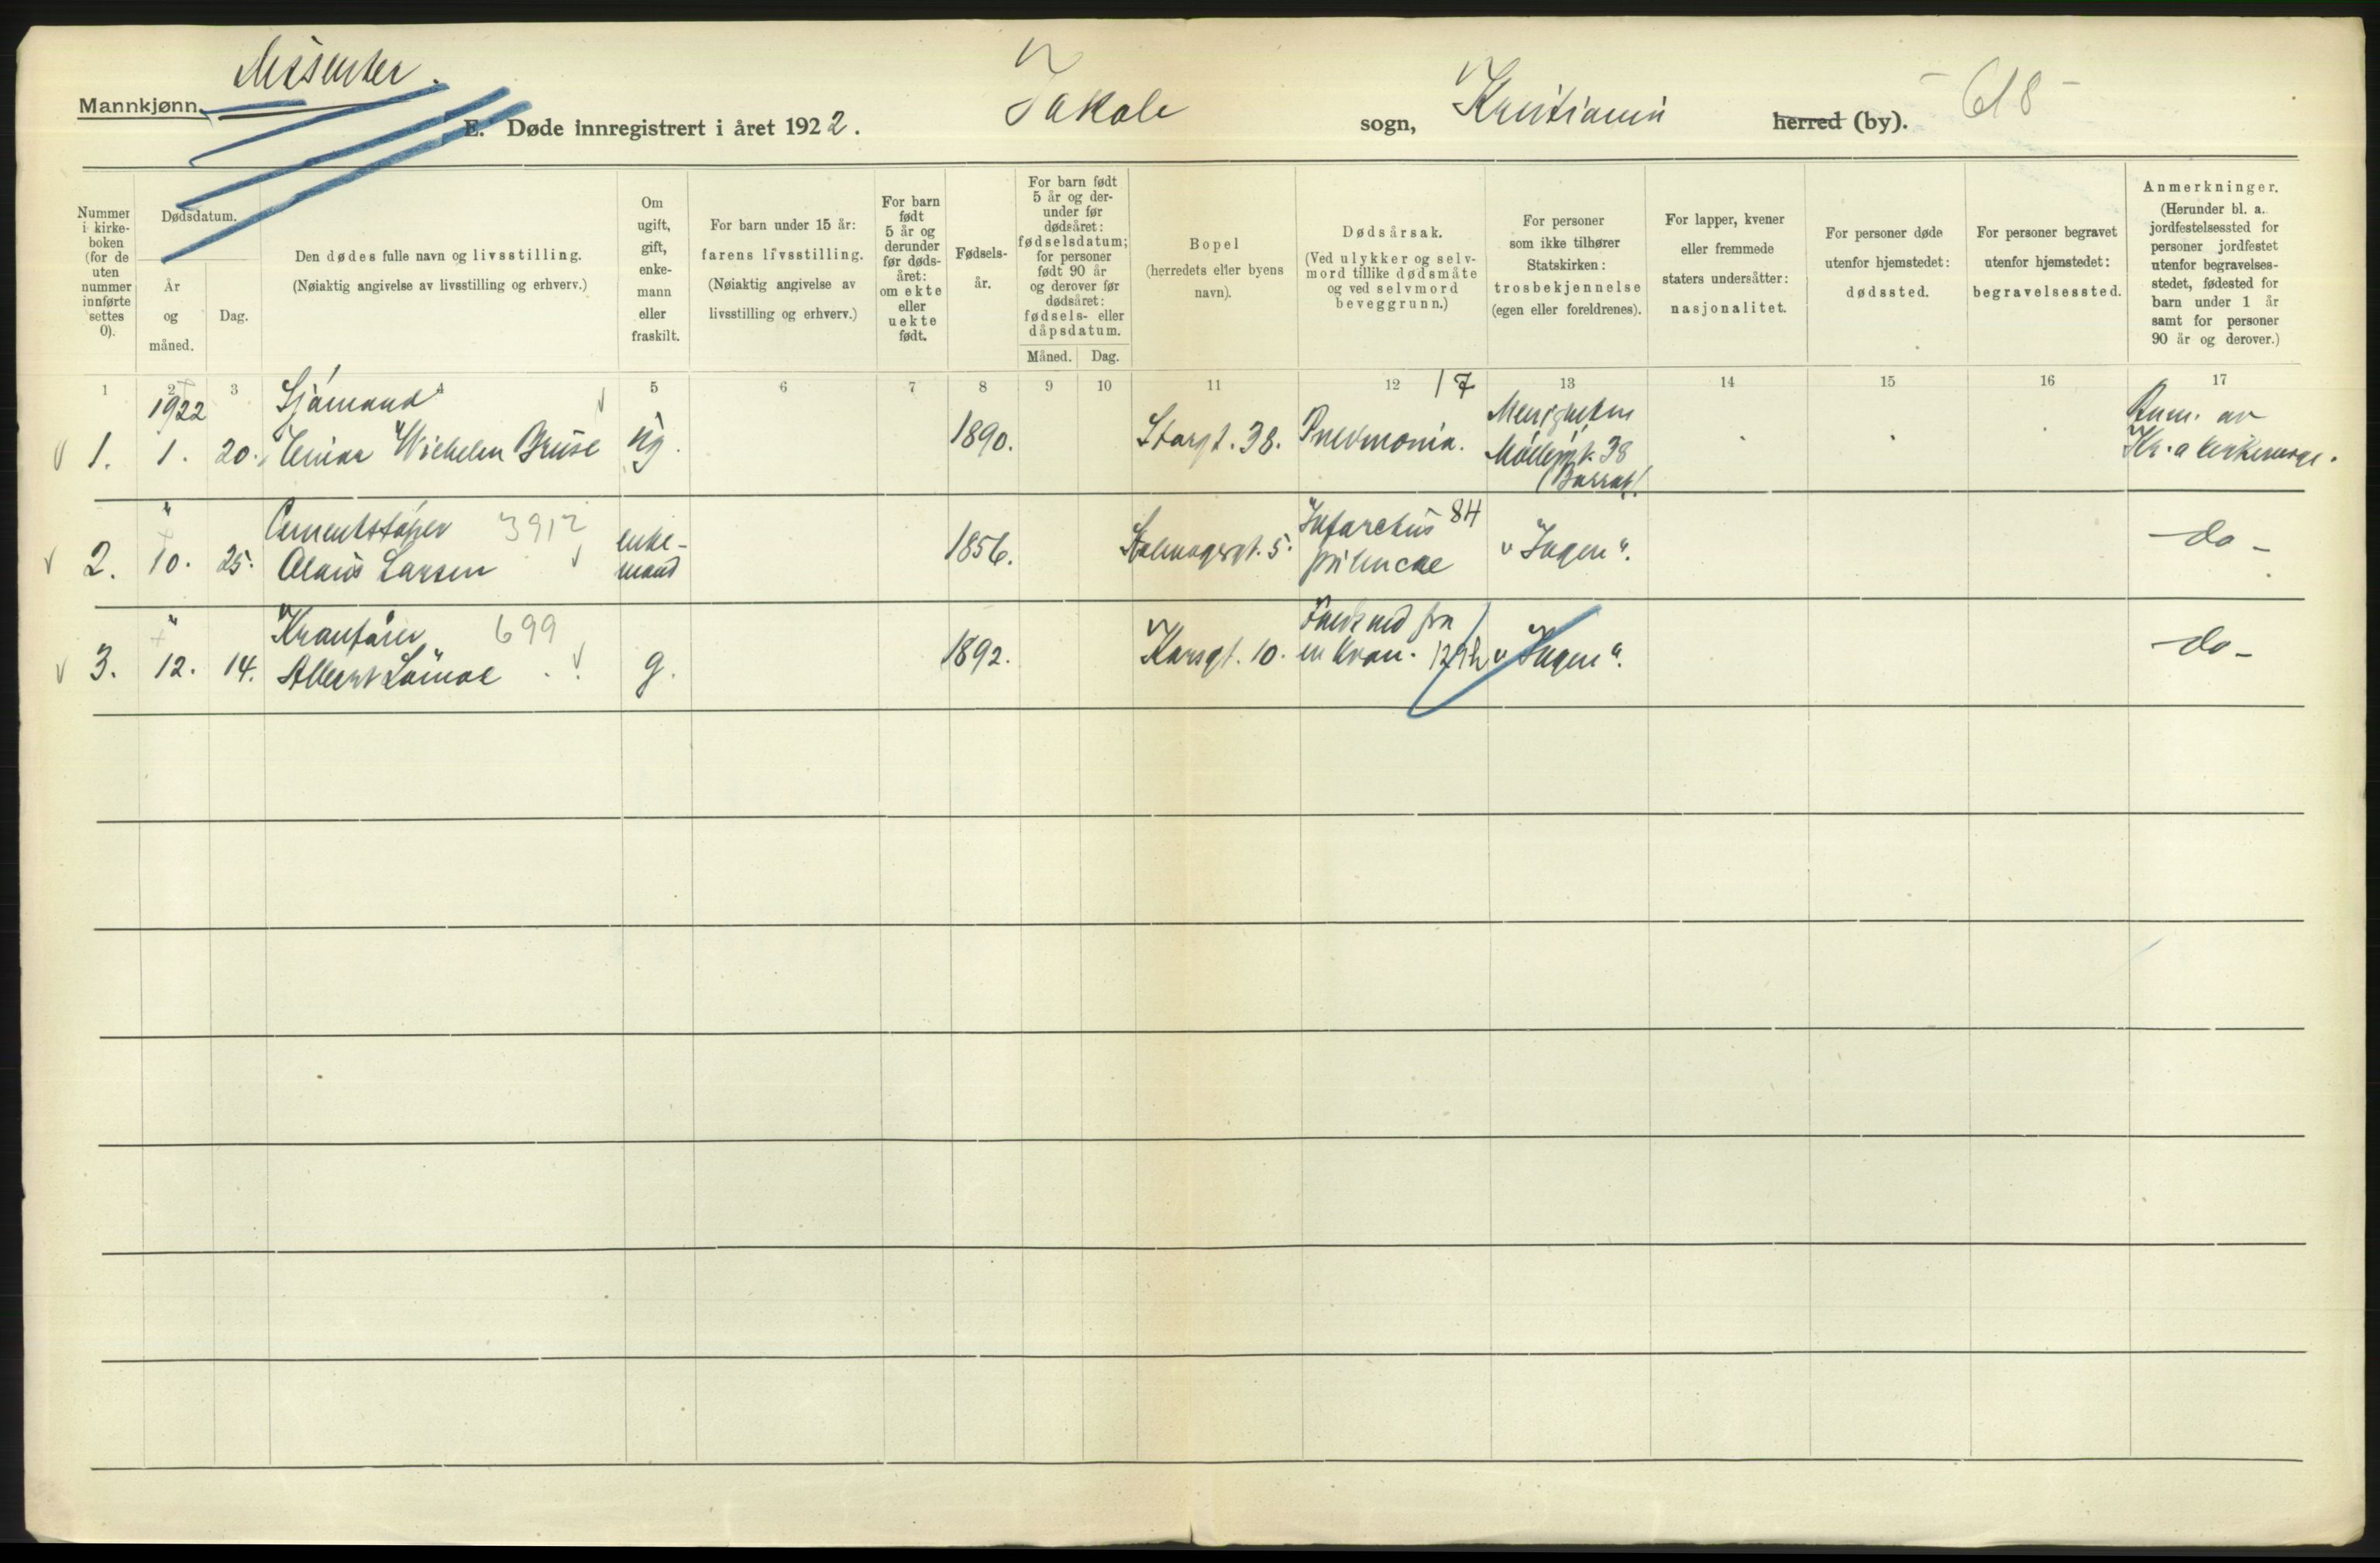 Dissenter.
Mannkjønn.
E. Døde innregistrert i året 1922. Jakob sogn, Kristiania herred (by). - 618 -
Nummer
i kirke-
boken
(for de
uten
nummer
innførte
settes
0).
Dødsdatum.
År
og
måned.
Dag.
Den dødes fulle navn og livsstilling.
(Nøiaktig angivelse av livsstilling og erhverv.)
Om
ugift,
gift,
enke-
mann
eller
fraskilt.
For barn under 15 år:
farens livsstilling.
(Nøiaktig angivelse av
livsstilling og erhverv.)
For barn
født
5 år og
derunder
før døds-
året:
om ekte
eller
uekte
født.
Fødsels-
år.
For barn født
5 år og der-
under før
dødsåret:
fødselsdatum;
for personer
født 90 år
og derover før
dødsåret:
fødsels- eller
dåpsdatum.
Måned. Dag.
Bopel
(herredets eller byens
navn).
Dødsårsak.
(Ved ulykker og selv-
mord tillike dødsmåte
og ved selvmord
beveggrunn.)
For personer
som ikke tilhører
Statskirken:
trosbekjennelse
(egen eller foreldrenes).
For lapper, kvener
eller fremmede
staters undersåtter:
nasjonalitet.
For personer døde
utenfor hjemstedet:
dødssted.
For personer begravet
utenfor hjemstedet:
begravelsessted.
Anmerkninger.
(Herunder bl. a.
jordfestelsessted for
personer jordfestet
utenfor begravelses-
stedet, fødested for
barn under 1 år
samt for personer
90 år og derover.)
1 2 3 4 5 6 7 8 9 10 11 12 13 14 15 16 17
1922 Sjømand 17 Menigheten Anm. av
1. 1. 20. Einar Wilhelm Bruse ug. 1890. Storgt. 38. Pneumonia. Møllergt. 38 Kr.a kirkeverge.
(Barrat).
" Cementstøper 3912 enke- Infarctus 84
2. 10. 25. Olaus Larsen mand 1856. 5. "Ingen". do -
" Kranfører 699 Faldt ned fra
3. 12. 14. Albert g. 1892. Korsgt. 10. en kran. "Ingen". do -